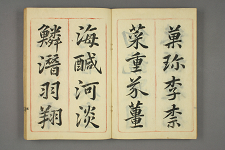 菓珎李柰
菜重芥薑
海醎河淡
鱗潛羽翔